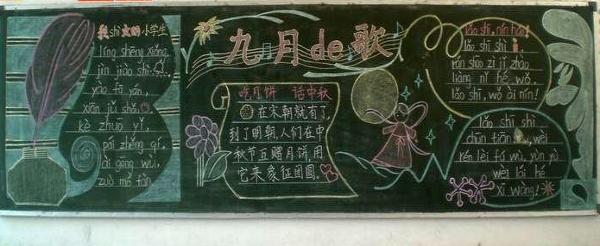 我shì文明小学生
líng shēng xiǎng,
jìn jiào shì.
yào fā yán,
xiān jǔ shǒu.
kè zhuō yǐ,
pái zhěng qí,
ài gōng wù,
zuò mó fàn.
九月de歌
吃月饼 话中秋
在宋朝就有了,
到了明朝人们在中
秋节互赠月饼,用
它来象征团圆。
lǎo shī, nín hǎo!
lǎo shī shì
liáng nǐ hé wǒ.
lǎo shī, wǒ ài nín!
lǎo shī shì
chūn tiān wèi
rén lèi fā wù, yùn yù
wèi lái hé
xī wàng!